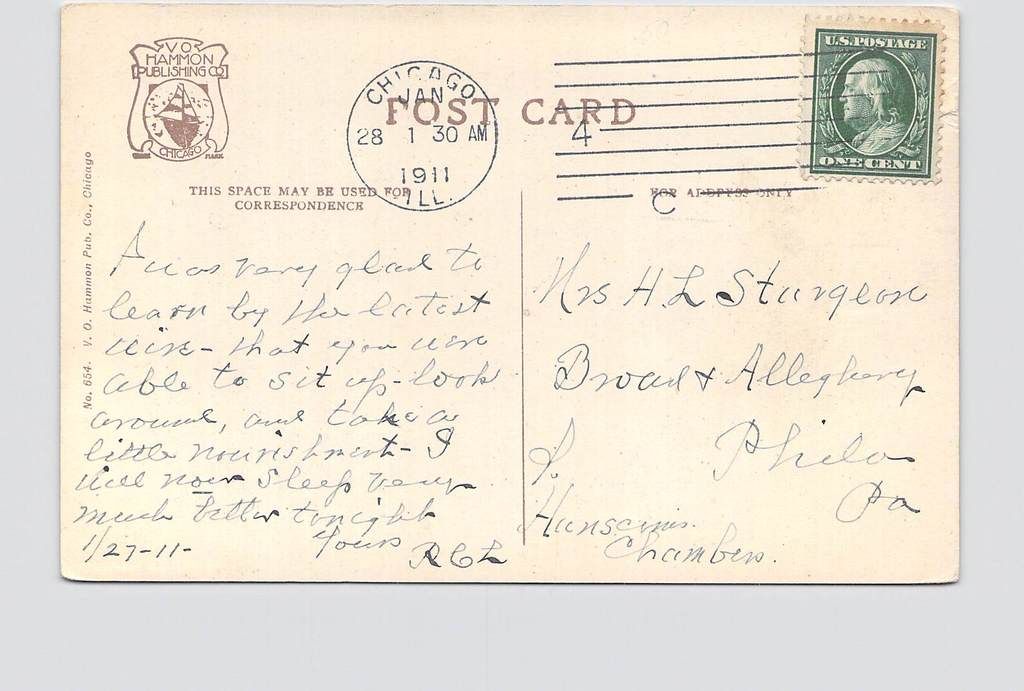 V O
HAMMON
PUBLISHING CO
CHICAGO
MARK
CHICAGO
JAN
28 1 30 AM
1911
ILL.
POST CARD
4
C
U.S. POSTAGE
ONE CENT
THIS SPACE MAY BE USED FOR
CORRESPONDENCE
FOR ADDRESS ONLY
No. 654. V. O. Hammon Pub. Co., Chicago
I was very glad to
learn by the latest
wire - that you were
able to sit up - look
around, and take a
little nourishment - I
will now sleep very
much better tonight
1/27-11- Yours
R C L
Mrs H. L Sturgeon
Broad & Allegheny
Phila
Pa
Chambers.